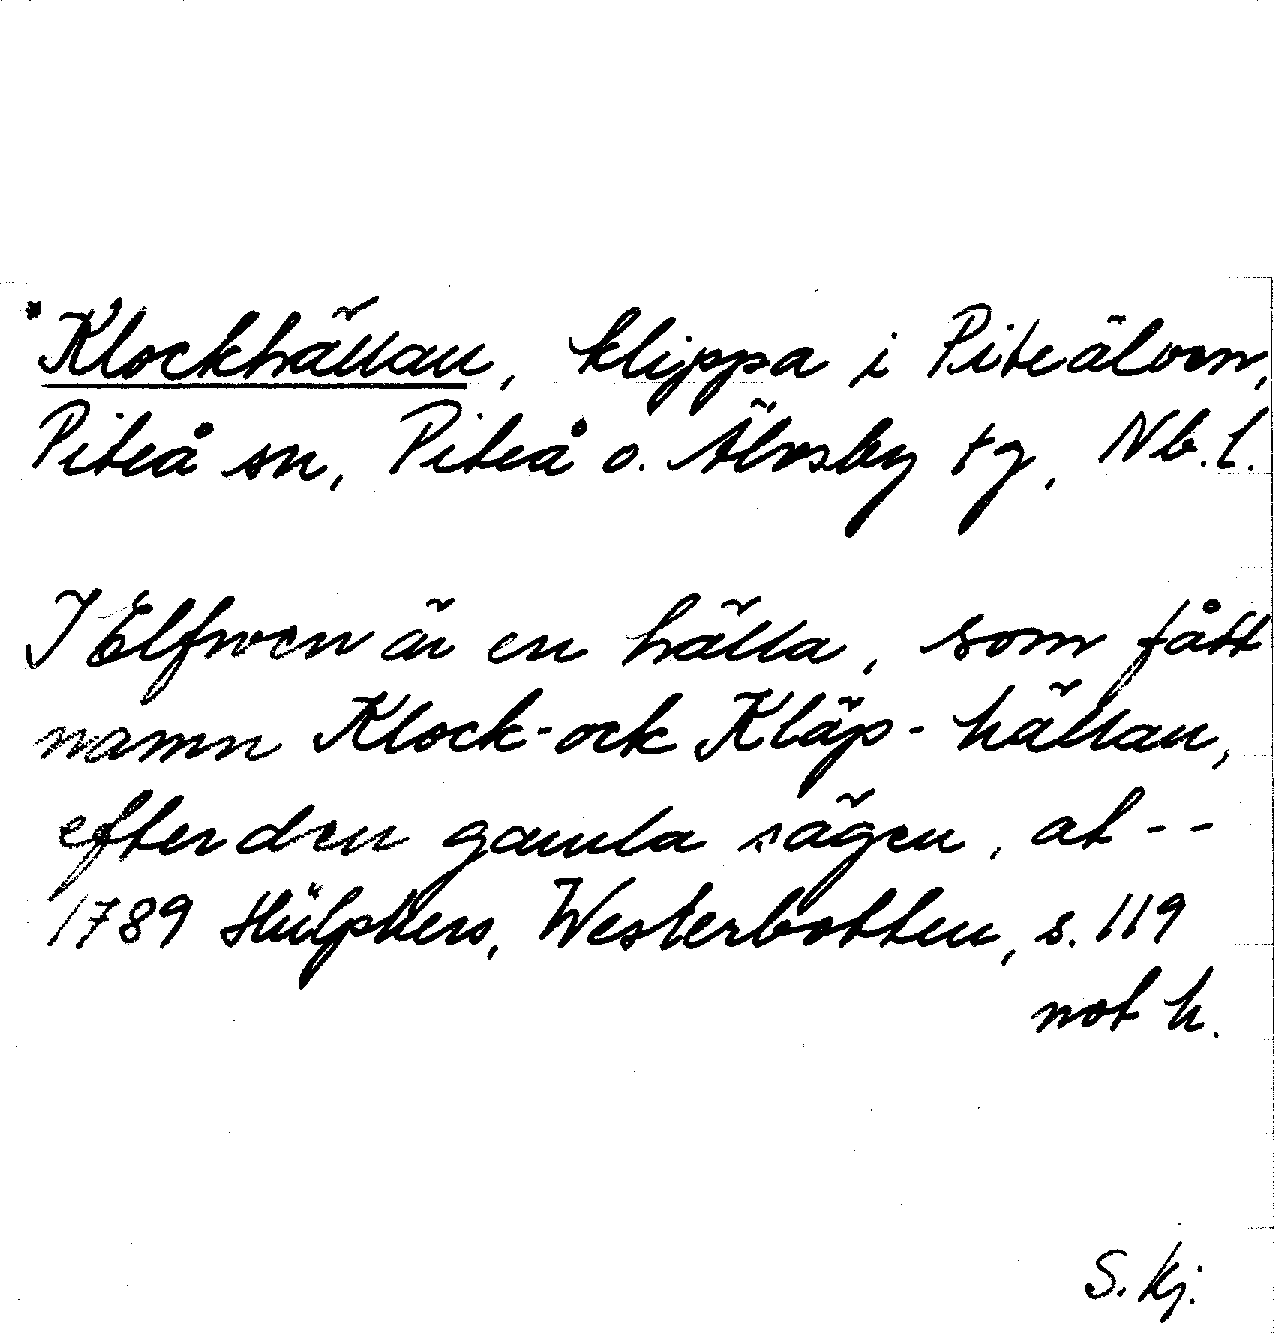 *Klockhällan, klippa i Piteälven,
Piteå sn, Piteå o. Älvsby tg, Nb. l.
I Elfwen är en hälla, som fått
namn Klock- ock Kläp-hällan,
efter den gamla sägen, at - -
1789 Hülphers, Westerbotten, s. 119
not h.
S. Kj.